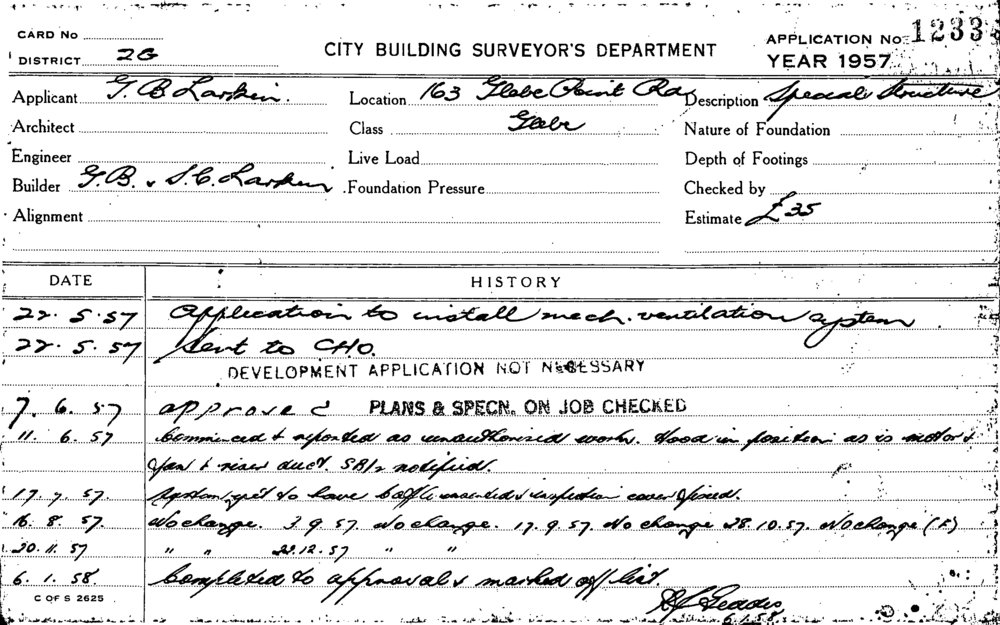 CARD No
DISTRICT 2G
CITY BUILDING SURVEYOR'S DEPARTMENT
APPLICATION No 1233
YEAR 1957
Applicant G. B Larkin.
Location 163 Glebe Point Rd
Description Special Structure
Architect
Class Glebe
Nature of Foundation
Engineer
Live Load
Depth of Footings
Builder G.B. & S.C. Larkin
Foundation Pressure
Checked by
Alignment
Estimate £35
DATE HISTORY
22. 5. 57 Application to install mech. ventilation system
22. 5. 57 Sent to CHO.
DEVELOPMENT APPLICATION NOT NECESSARY
7. 6. 57 approved PLANS & SPECN. ON JOB CHECKED
11. 6. 57 Commenced & reported as unauthorised work. Hood in position as is motor &
fan & riser duct. SBI notified.
17. 7. 57 System yet to have baffle amended & inspection cover fixed.
16. 8. 57. No change. 3. 9. 57 No change. 17. 9. 57. No change 28. 10. 57. No change (F)
20. 11. 57 " " 22. 12. 57 " "
6. 1. 58. Completed to approval & marked off list.
C OF S 2625
Geddes
6. 1. 58